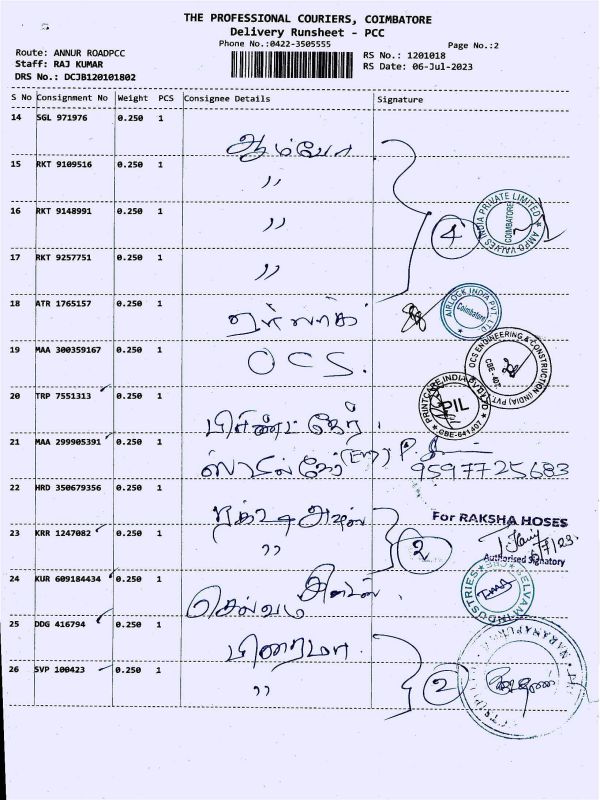 THE PROFESSIONAL COURIERS, COIMBATORE
Delivery Runsheet - PCC
Phone No.:0422-3505555
Page No.:2
Route: ANNUR ROADPCC
Staff: RAJ KUMAR
DRS No.: DCJB120101802
RS No.: 1201018
RS Date: 06-Jul-2023
S No Consignment No Weight PCS Consignee Details Signature
14 SGL 971976 0.250 1
15 RKT 9109516 0.250 1 "
16 RKT 9148991 0.250 1 " 4
AMPO VALVES INDIA PRIVATE LIMITED COIMBATORE
17 RKT 9257751 0.250 1 "
18 ATR 1765157 0.250 1 ஏர்லாக்
AIRLOCK INDIA PVT LTD Coimbatore
19 MAA 300359167 0.250 1 OCS.
OCS ENGINEERING & CONSTRUCTION (INDIA) PVT CBE-407
20 TRP 7551313 0.250 1 பிரிண்ட் கேர்.
PRINTCARE INDIA PVT LTD PIL CBE-641407
21 MAA 299905391 0.250 1
9597725683
22 HRD 350679356 0.250 1
For RAKSHA HOSES
23 KRR 1247082 0.250 1 " 2
Authorised Signatory
24 KUR 609184434 0.250 1
SRI SELVAM INDUSTRIES
25 DDG 416794 0.250 1 பிரைமா.
26 SVP 100423 0.250 1 " 2